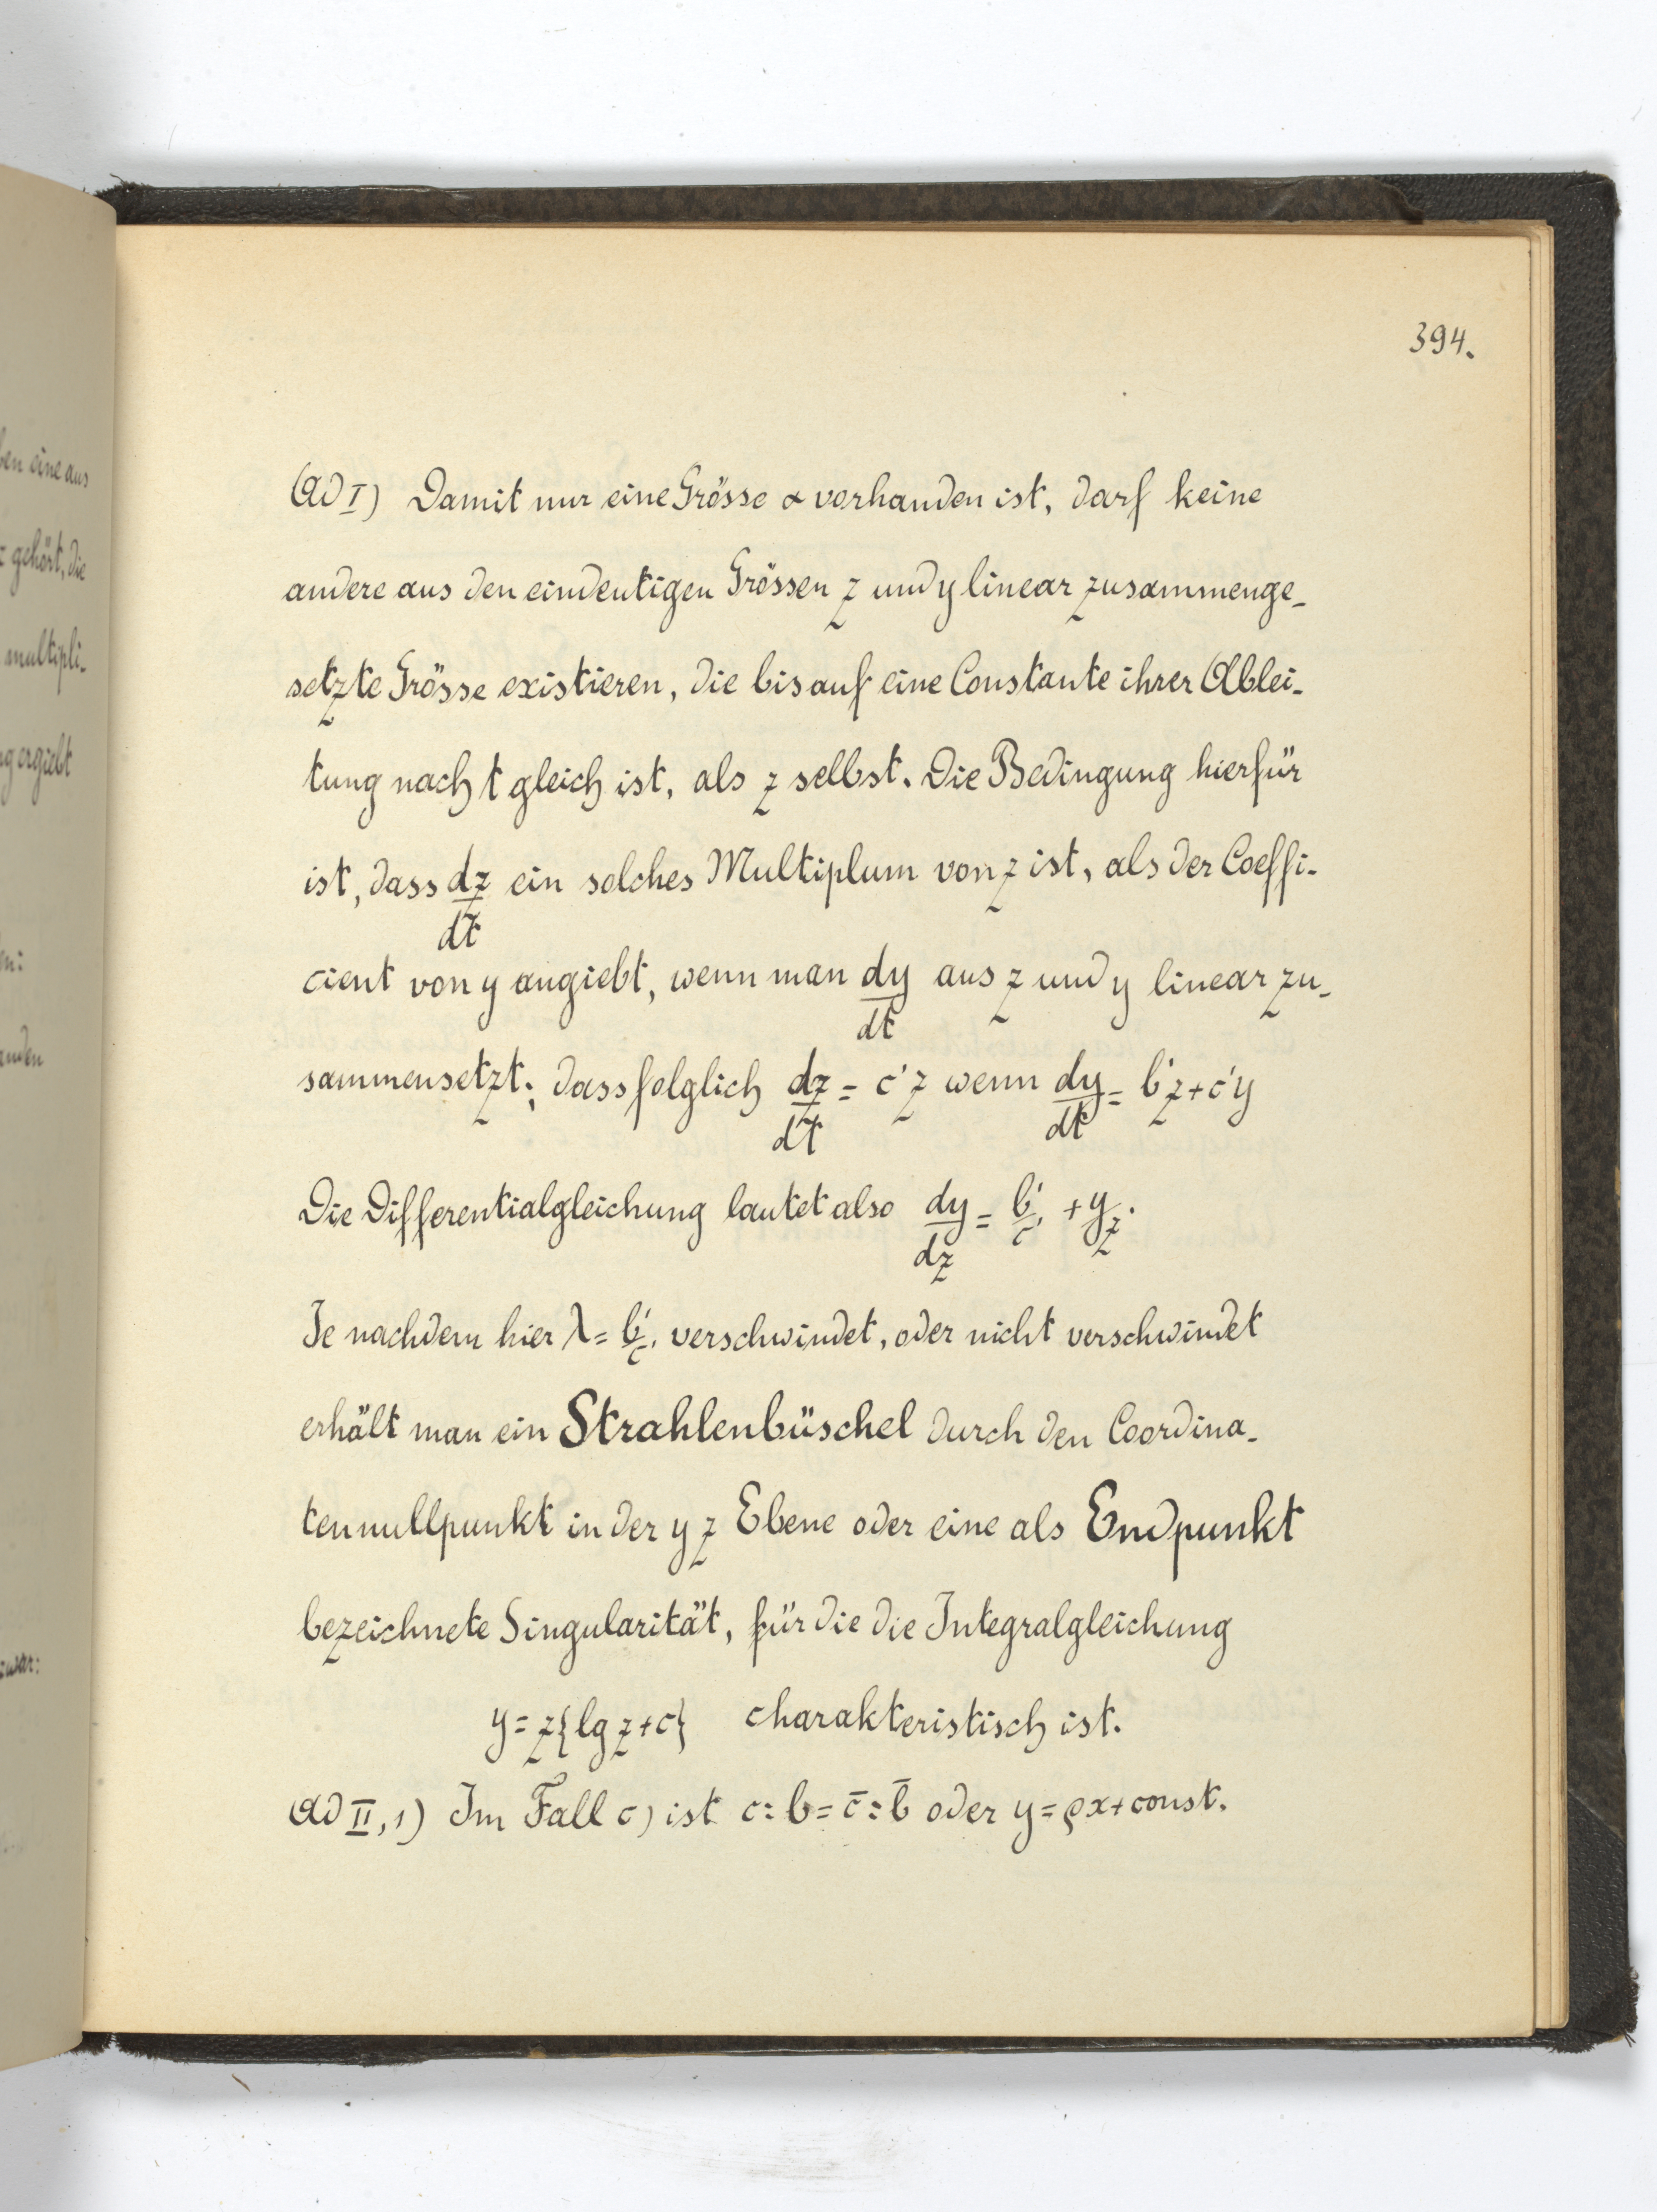 394.
ben eine aus
gehört, die
multipli-
ergiebt
anden
zwar:
(Ad I) Damit nur eine Grösse α vorhanden ist, darf keine
andere aus den eindeutigen Grössen z und y linear zusammenge-
setzte Grösse existieren, die bis auf eine Constante ihrer Ablei-
tung nach t gleich ist, als z selbst. Die Bedingung hierfür
ist, dass dz/dt ein solches Multiplum von z ist, als der Coeffi-
cient von y angiebt, wenn man dy/dt aus z und y linear zu-
sammensetzt; dass folglich dz/dt = c'z wenn dy/dt = b'z + c'y
Die Differentialgleichung lautet also dy/dz = b'/c' + y/z.
Je nachdem hier λ = b'/c' verschwindet, oder nicht verschwindet
erhält man ein Strahlenbüschel durch den Coordina-
tennullpunkt in der y z Ebene oder eine als Endpunkt
bezeichnete Singularität, für die die Integralgleichung
y = z{lg z + c} charakteristisch ist.
Ad II, 1) Im Fall c) ist c : b = c̄ : b̄ oder y = ρx + const.